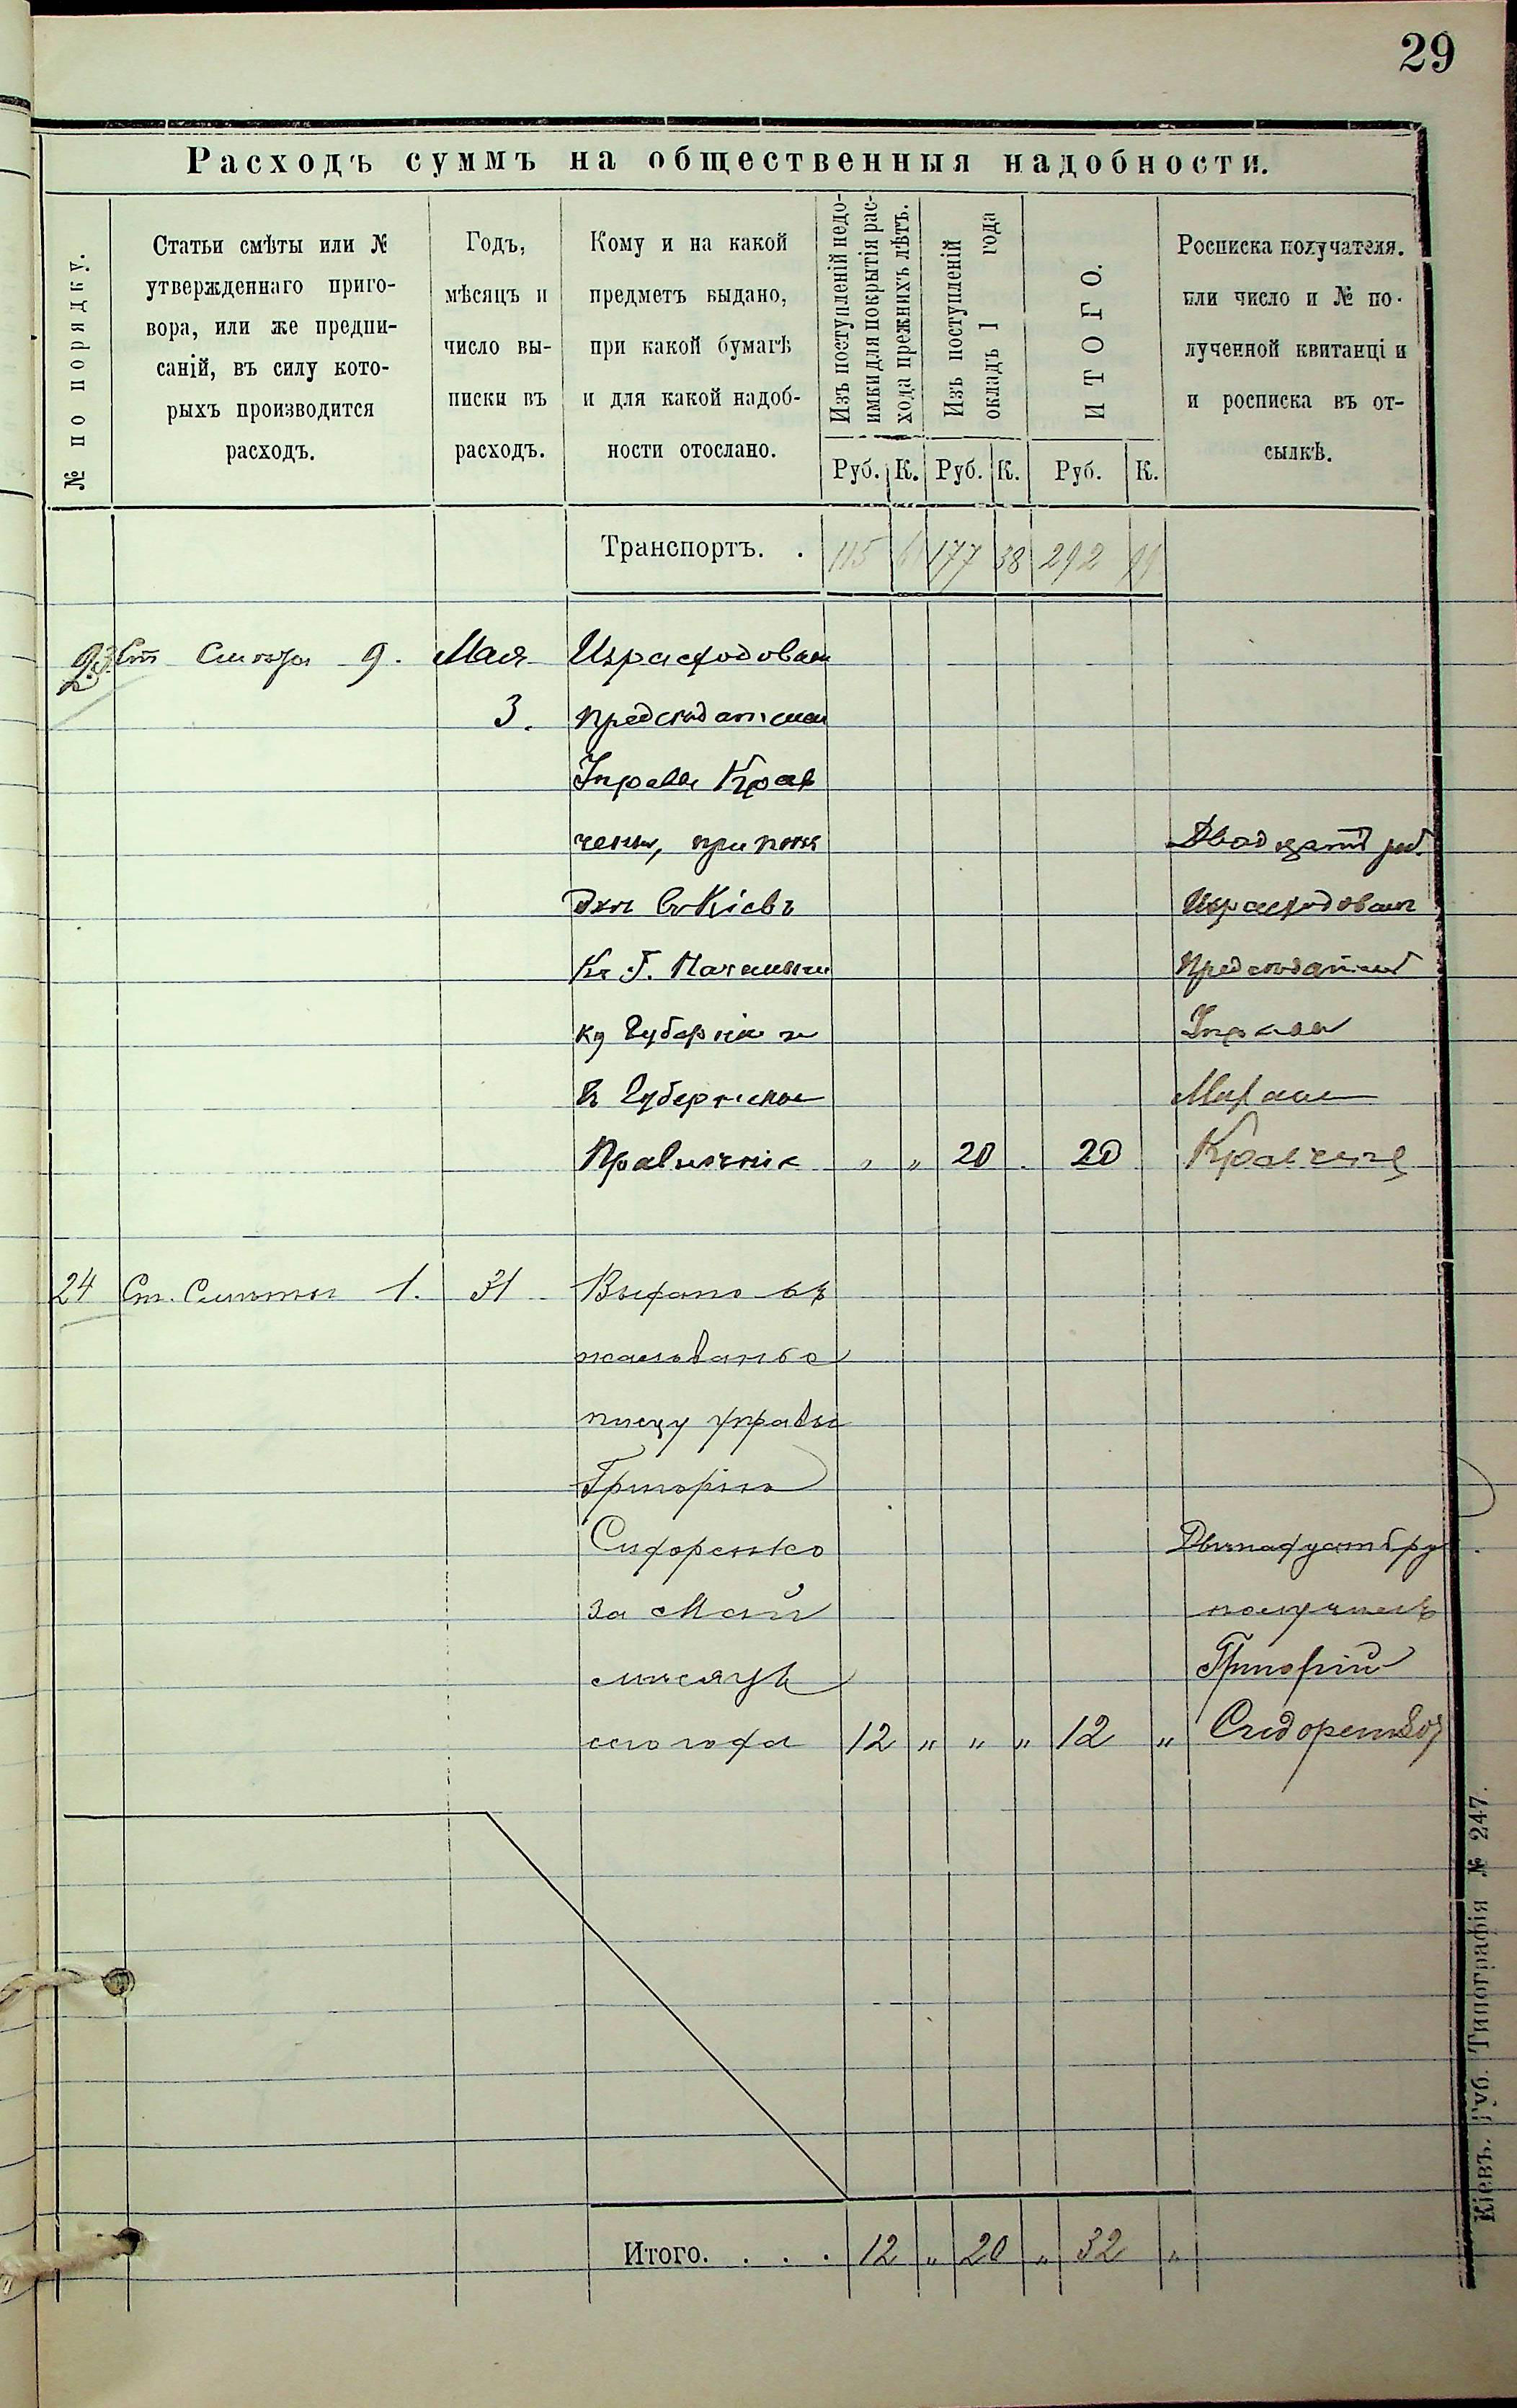 29
Расходъ суммъ на общественныя надобности.
№ по порядку.
Статьи смѣты или №
утвержденнаго приго-
вора, или же предпи-
саній, въ силу кото-
рыхъ производится
расходъ.
Годъ,
мѣсяцъ и
число вы-
писки въ
расходъ.
Кому и на какой
предметъ выдано,
при какой бумагѣ
и для какой надоб-
ности отослано.
Изъ поступленій недо-
имки для покрытія рас-
хода прежнихъ лѣтъ.
Изъ поступленій
окладъ 1 года
ИТОГО.
Росписка получателя.
или число и № по-
лученной квитанціи
и росписка въ от-
сылкѣ.
Руб. К. Руб. К. Руб. К.
Транспортъ. . 115 177 38 292
23 Ст Смѣты 9. Мая Израсходовано
3. предсѣдателем
Управы Крав
ченко, при поѣз
дкѣ въ Кіевъ
Къ Г. Начальни
ку Губерніи и
въ Губернское
Правленіе „ „ 20 . 20
Двадцать руб.
Израсходовалъ
Предсѣдатель
Управы
Кравченко
24 Ст. Смѣты 1. 31 Выдано въ
жалованье
писцу управы
Григорію
Сидоренко
за Май
мѣсяцъ
сего года 12 „ „ „ 12 „
Двѣнадцать ру
получилъ
Григорій
Сидоренко
Итого. . . . 12 „ 20 „ 32 „
Кіевъ. Губ. Типографія № 247.